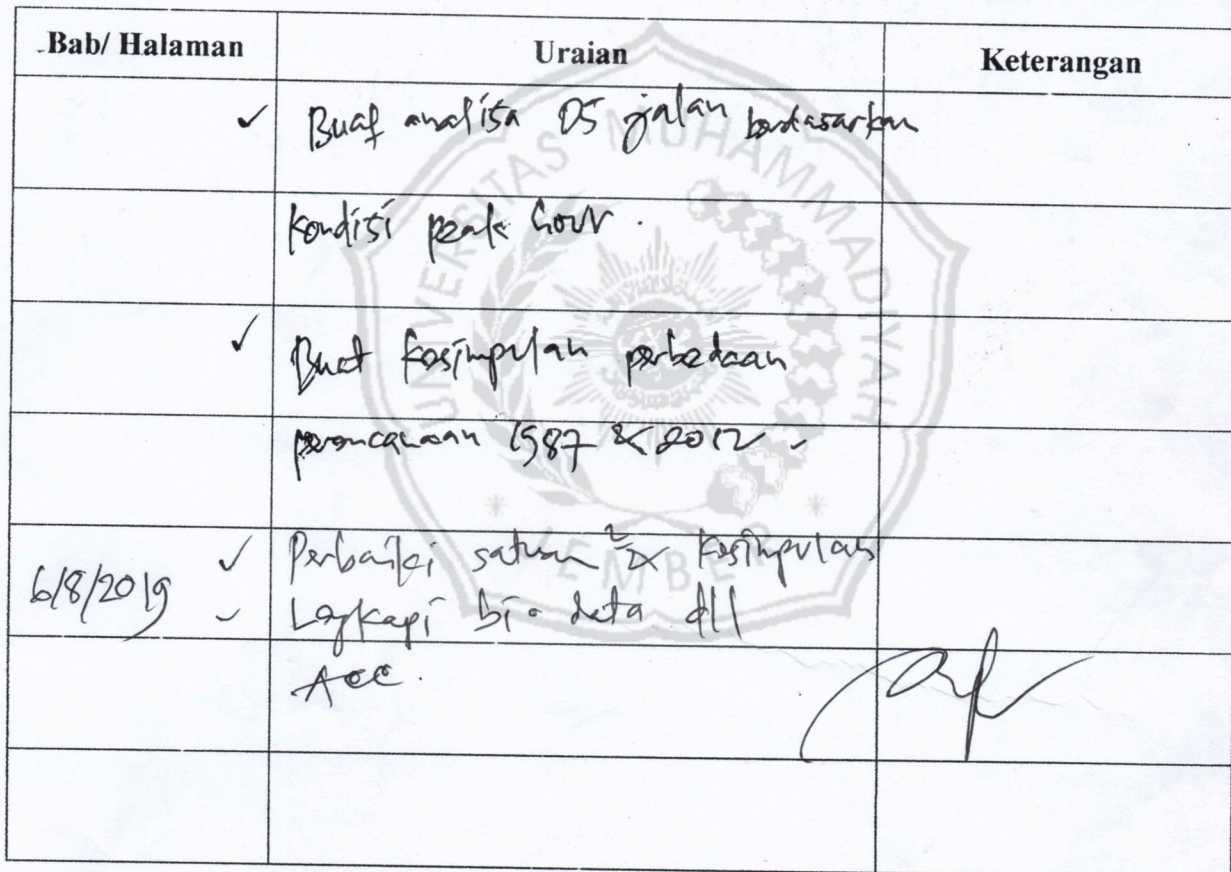 Bab/ Halaman Uraian Keterangan
✓ Buat analisa DS jalan berdasarkan
kondisi peak hour.
✓ Buat kesimpulan perbedaan
perencanaan 1987 & 2012.
✓ Perbaiki satuan2 & kesimpulan
6/8/2019 ✓ Lengkapi bio data dll
Acc.
UNIVERSITAS MUHAMMADIYAH
JEMBER